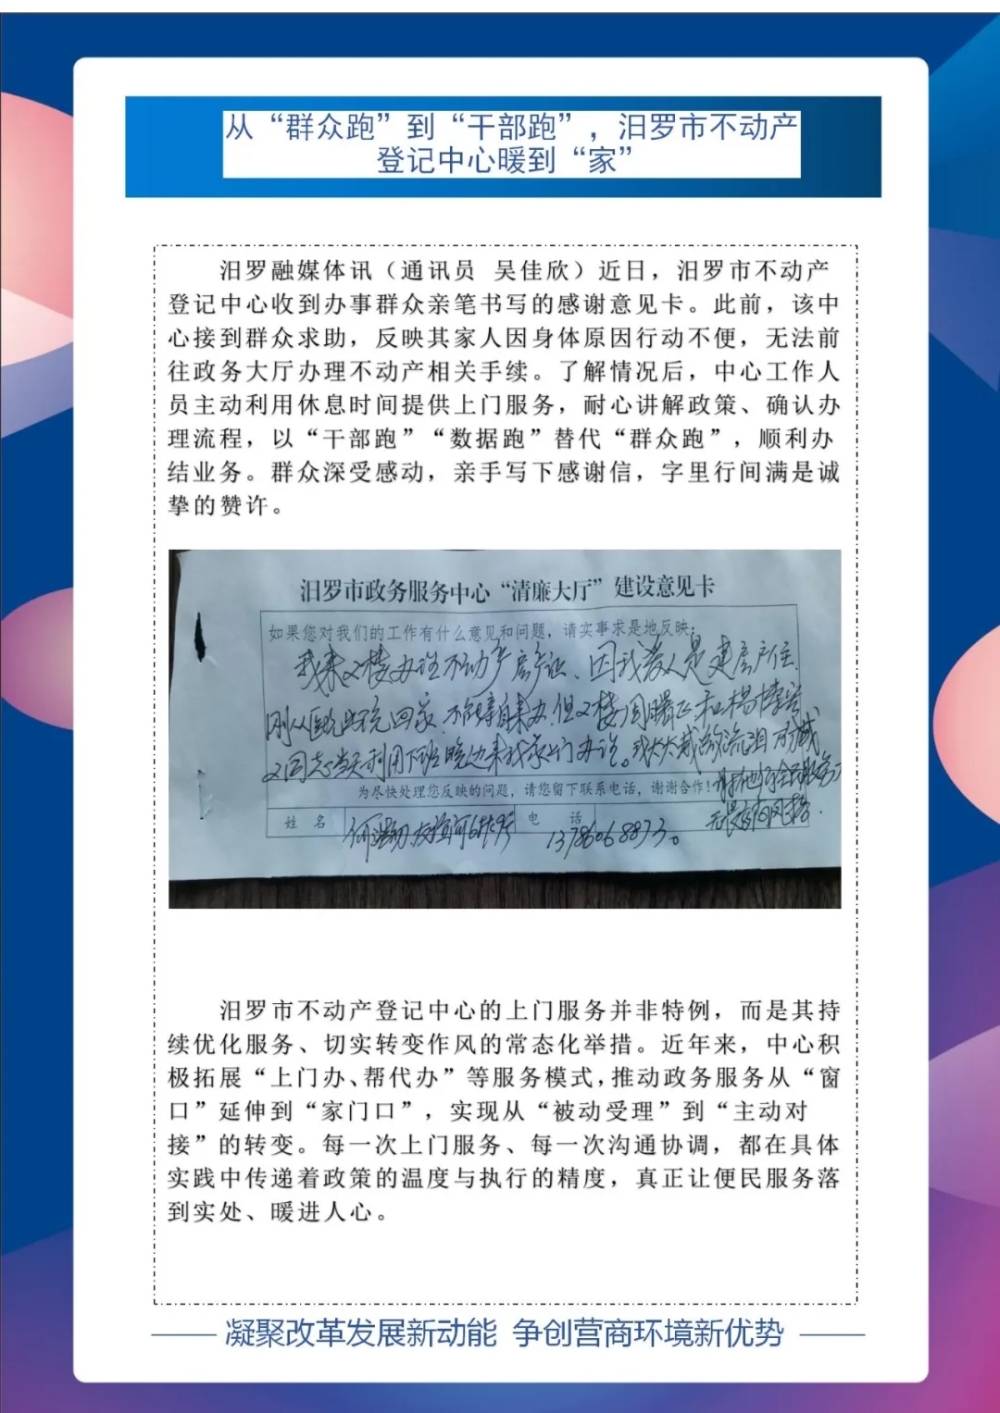 从“群众跑”到“干部跑”，汨罗市不动产
登记中心暖到“家”
汨罗融媒体讯（通讯员 吴佳欣）近日，汨罗市不动产
登记中心收到办事群众亲笔书写的感谢意见卡。此前，该中
心接到群众求助，反映其家人因身体原因行动不便，无法前
往政务大厅办理不动产相关手续。了解情况后，中心工作人
员主动利用休息时间提供上门服务，耐心讲解政策、确认办
理流程，以“干部跑”“数据跑”替代“群众跑”，顺利办
结业务。群众深受感动，亲手写下感谢信，字里行间满是诚
挚的赞许。
汨罗市政务服务中心“清廉大厅”建设意见卡
如果您对我们的工作有什么意见和问题，请实事求是地反映：
我来2楼办证不动产房产证、因我爱人是
刚从医院出院回家
2同志当天利用下班晚边来我家上门办证。
为尽快处理您反映的问题，请您留下联系电话，谢谢合作！
姓 名
电 话
13786068873。
汨罗市不动产登记中心的上门服务并非特例，而是其持
续优化服务、切实转变作风的常态化举措。近年来，中心积
极拓展“上门办、帮代办”等服务模式，推动政务服务从“窗
口”延伸到“家门口”，实现从“被动受理”到“主动对
接”的转变。每一次上门服务、每一次沟通协调，都在具体
实践中传递着政策的温度与执行的精度，真正让便民服务落
到实处、暖进人心。
凝聚改革发展新动能 争创营商环境新优势